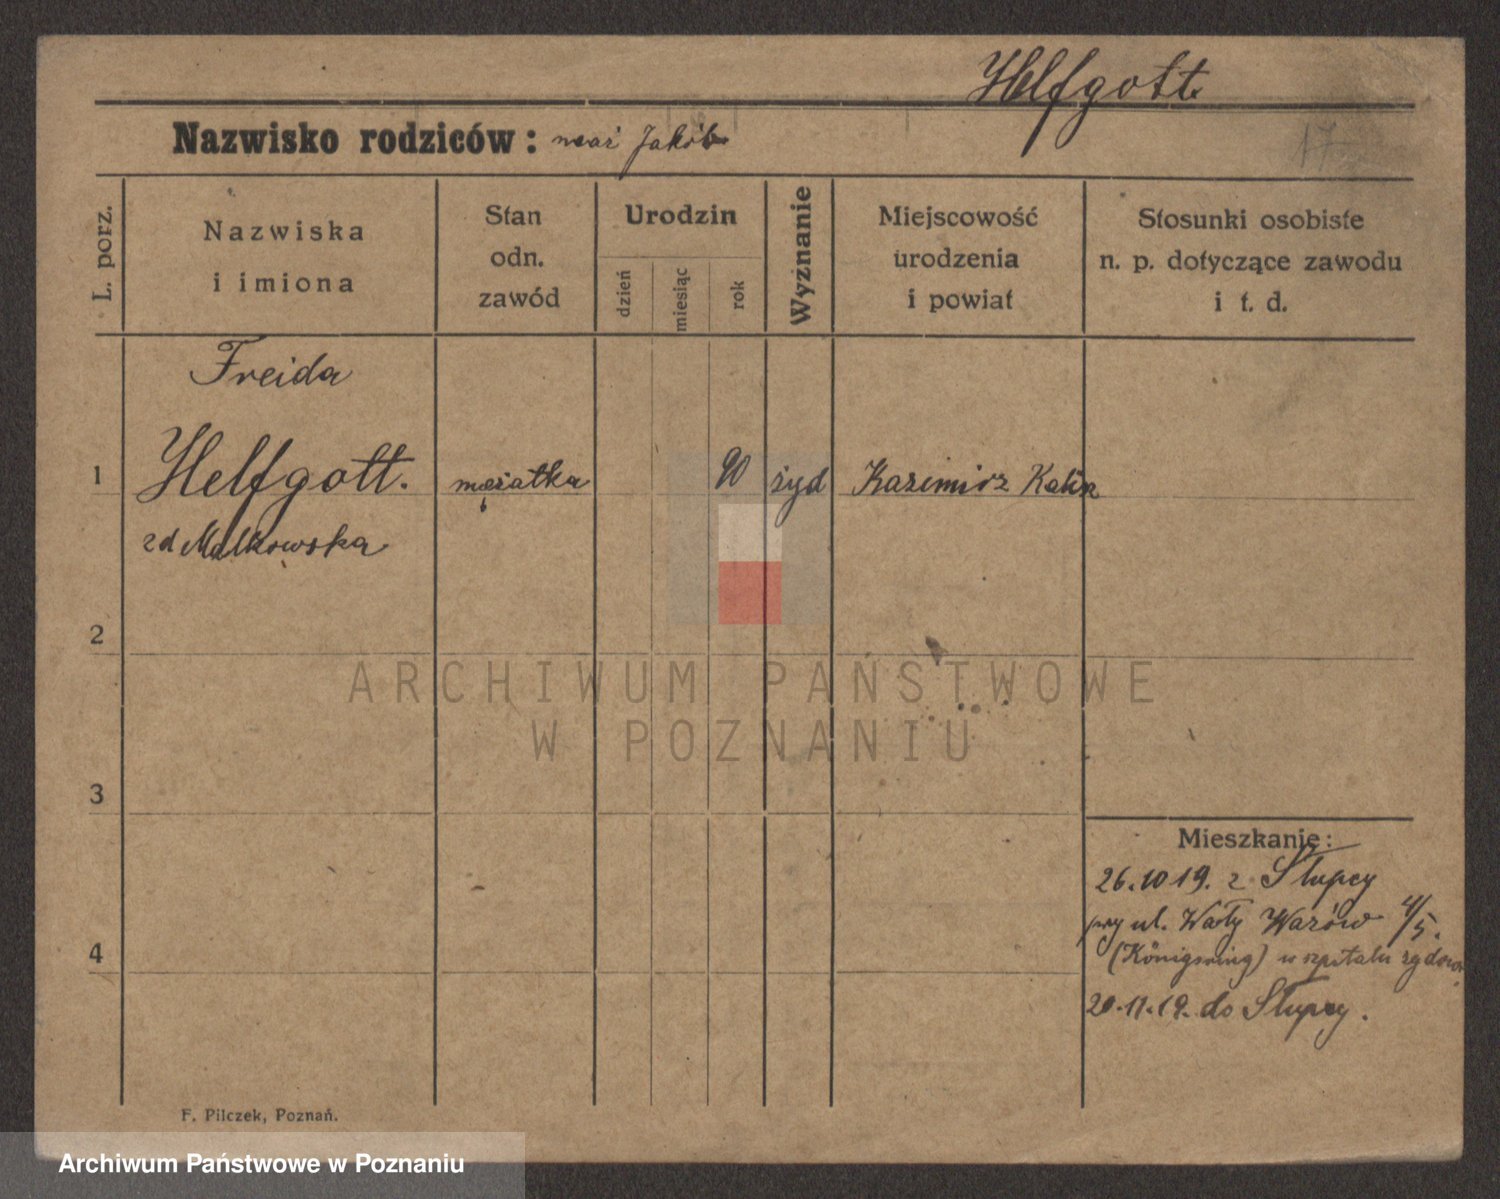 Helfgott.
Nazwisko rodziców: mąż Jakób
17
L. porz.
Nazwiska
i imiona
Stan
odn.
zawód
Urodzin
dzień
miesiąc
rok
Wyznanie
Miejscowość
urodzenia
i powiat
Stosunki osobiste
n. p. dotyczące zawodu
i t. d.
Freida
1 Helfgott. mężatka 90 żyd Kazimierz Kalisz
zd Malkowska
2
ARCHIWUM PAŃSTWOWE
W POZNANIU
3
Mieszkanie:
26.10 19. z Słupcy
przy ul. Wały Wazów 4/5.
(Königsring) w szpitalu żydow.
4
20.11.19. do Słupcy.
F. Pilczek, Poznań.
Archiwum Państwowe w Poznaniu